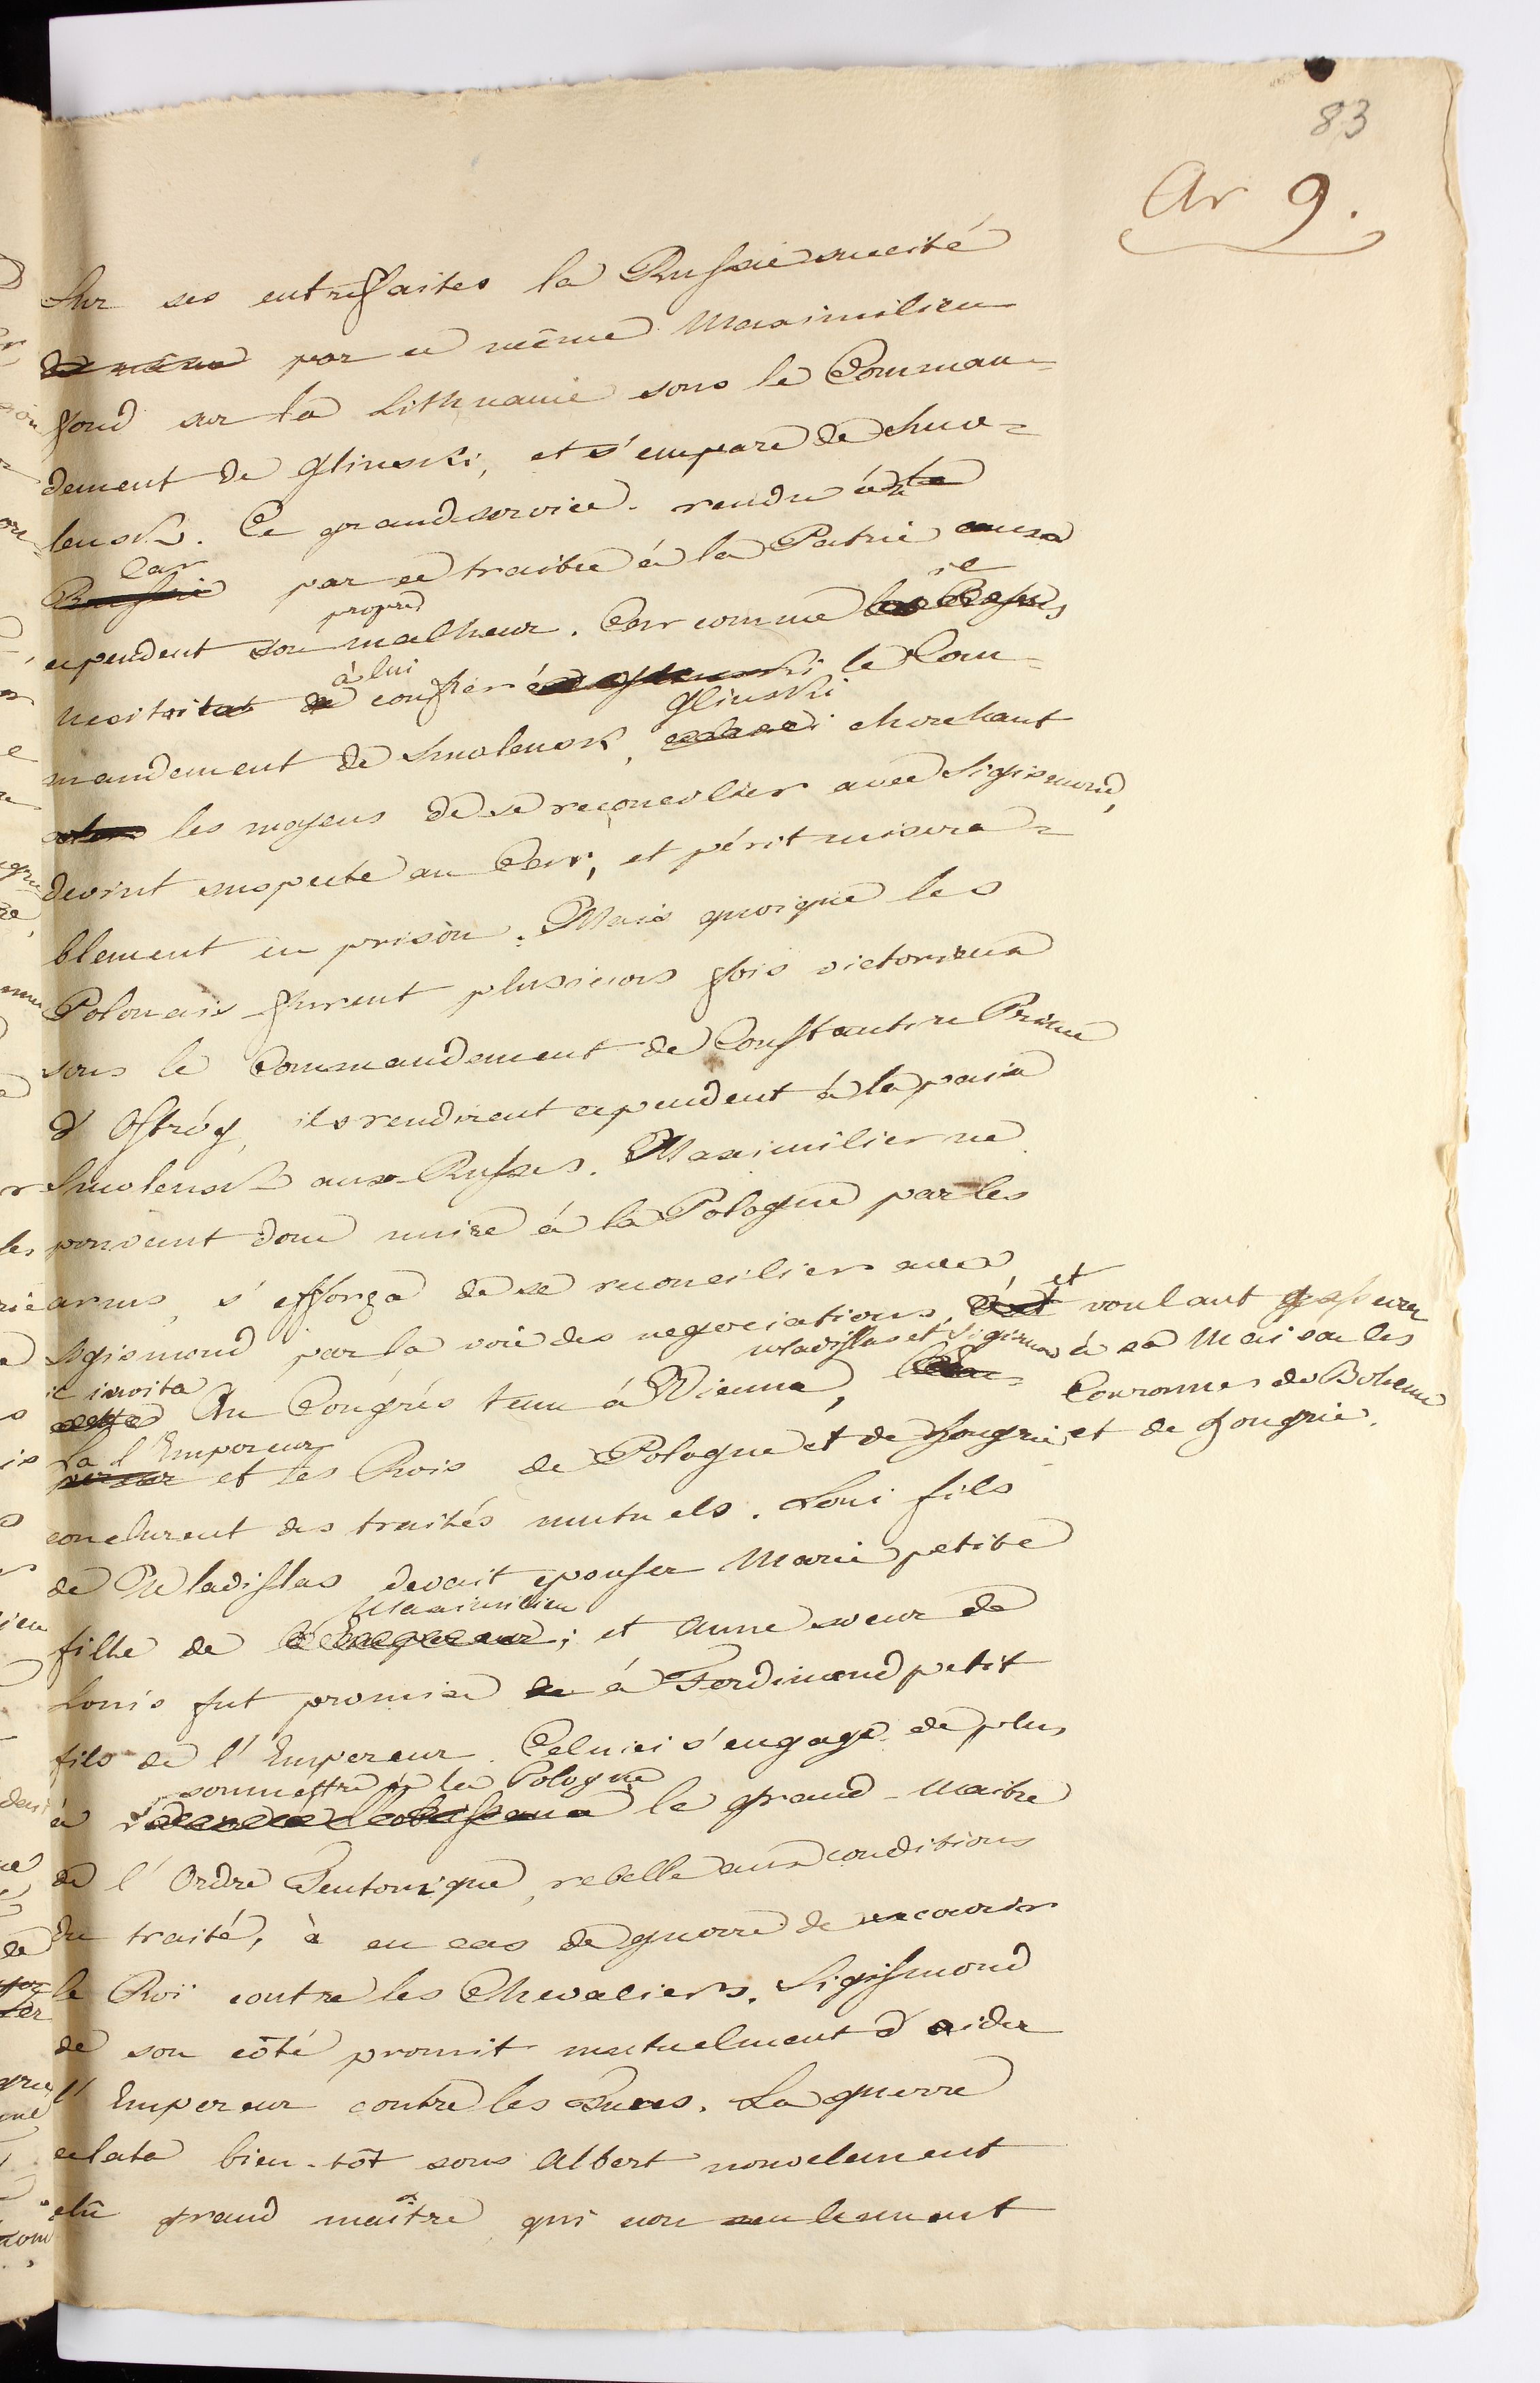 83
Ar 9.
Sur ses entrefaites la Russie sucité
par ce même Maximilien
fond sur la Lithuanie sous le Comman=
dement de Glinski, et s'empare de Smo=
lensk. Ce grand service rendu au
Czar
Russie par ce traitre à la Patrie causa
propre
cependent son malheur. Car comme
hesitait à lui conferé le Com=
Glinski
mandement de Smolensk, cherchant
les moyens de se reconcilier avec Sigismond,
devint suspecte au Czar, et périt misera=
blement en prison. Mais quoique les
Polonais furent plusieurs fois victorieux
sous le Commandement de Constantin Prince
d'Ostróg, ils rendirent cependent à la paix
Smolensk aux Russes. Maximilien ne
pouvant donc nuire à la Pologne par les
armes, s'efforça de se reconcilier avec
Sigismond par la voie des negociations, et voulant assurer
Uladislas et Sigismond à sa Maison les
il invita
Au Congrés tenu à Vienne, Couronnes de Boheme
Là l'Empereur
et les Rois de Pologne et de Hongrie et de Hongrie.
conclurent des traités mutuels. Loui fils
de Uladislas devait epouser Marie petite
Maximilien
fille de l'Empereur; et Anne soeur de
Louis fut promise à Ferdinand petit
fils de l'Empereur. Celui ci s'engage de plus
soumettre à la Pologne
à le grand-Maitre
de l'Ordre Teutonique, rebelle aux conditions
du traité, à en cas de guerre de secourir
le Roi contre les Chevaliers. Sigismond
de son côté promit mutuelment d'aider
l'Empereur contre les Turcs. La guerre
eclata bien-tôt sous Albert nouvelement
elû grand maître qui non seulement